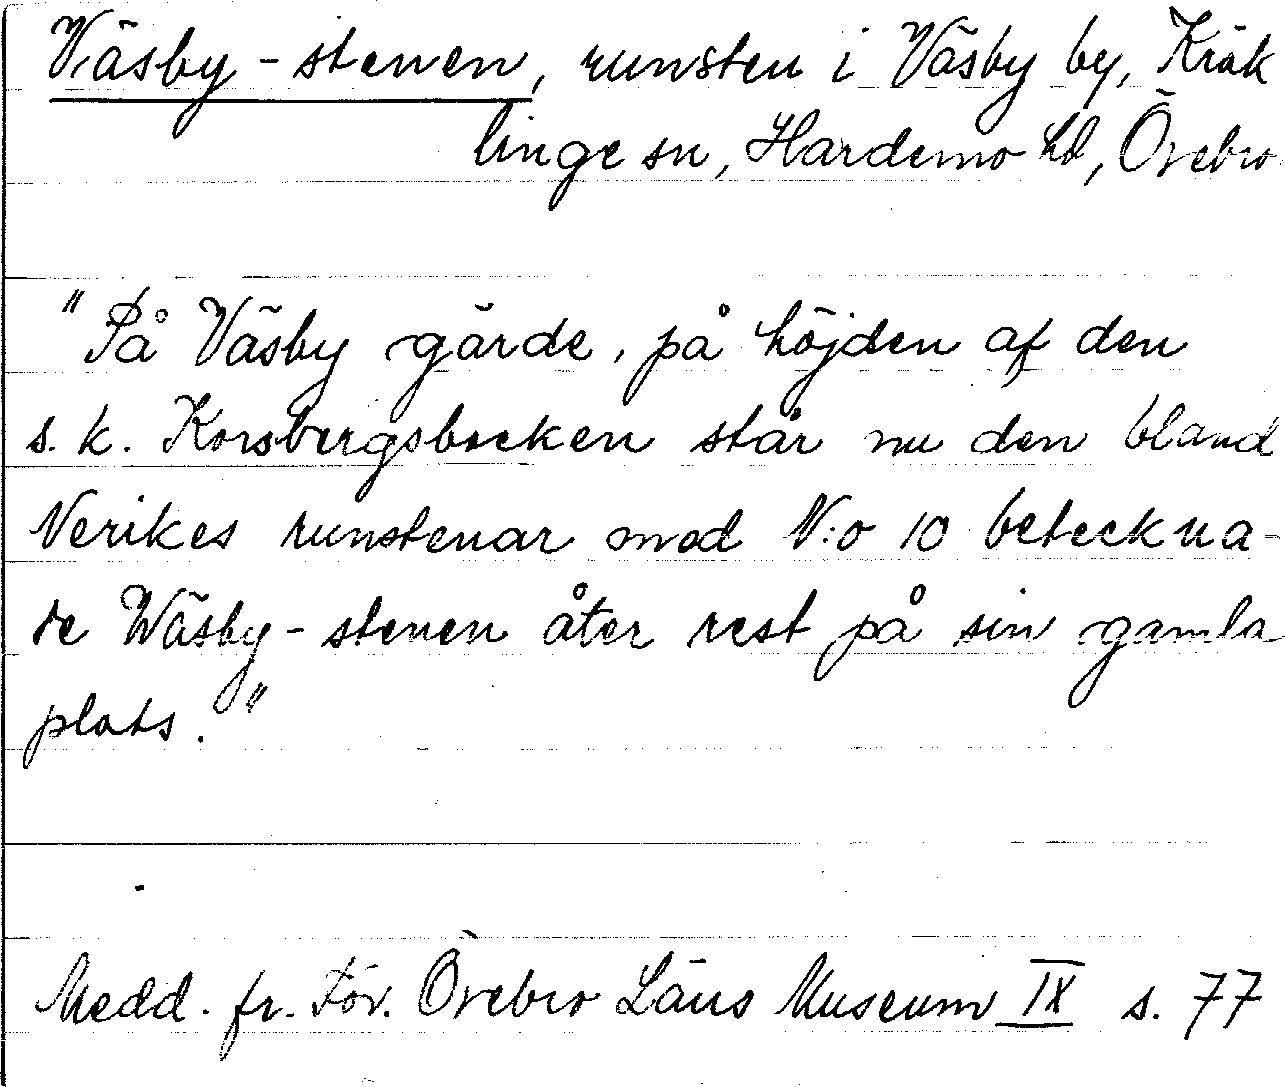 Väsby-stenen, runsten i Väsby by, Kräk
linge sn, Hardemo hd, Örebro
"På Väsby gärde, på höjden af den
s.k. Korsbergsbacken står nu den bland
Nerikes runstenar med N:o 10 beteckna-
de Wäsby-stenen åter rest på sin gamla
plats."
Medd. fr. För. Örebro Läns Museum IX s. 77